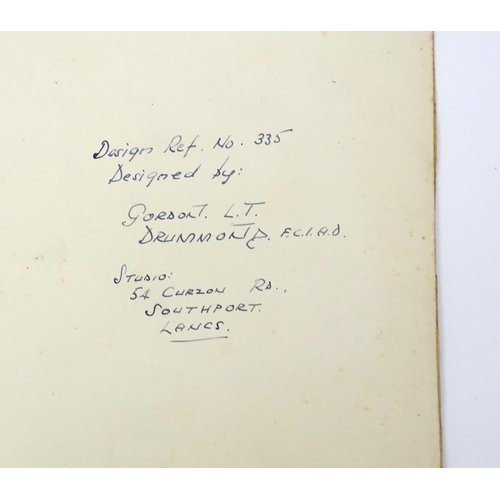 Design Ref. No. 335
Designed by:
GORDON. L.T.
DRUMMOND. F.C.I.A.D.
STUDIO:
54 CURZON RD.,
SOUTHPORT.
LANCS.